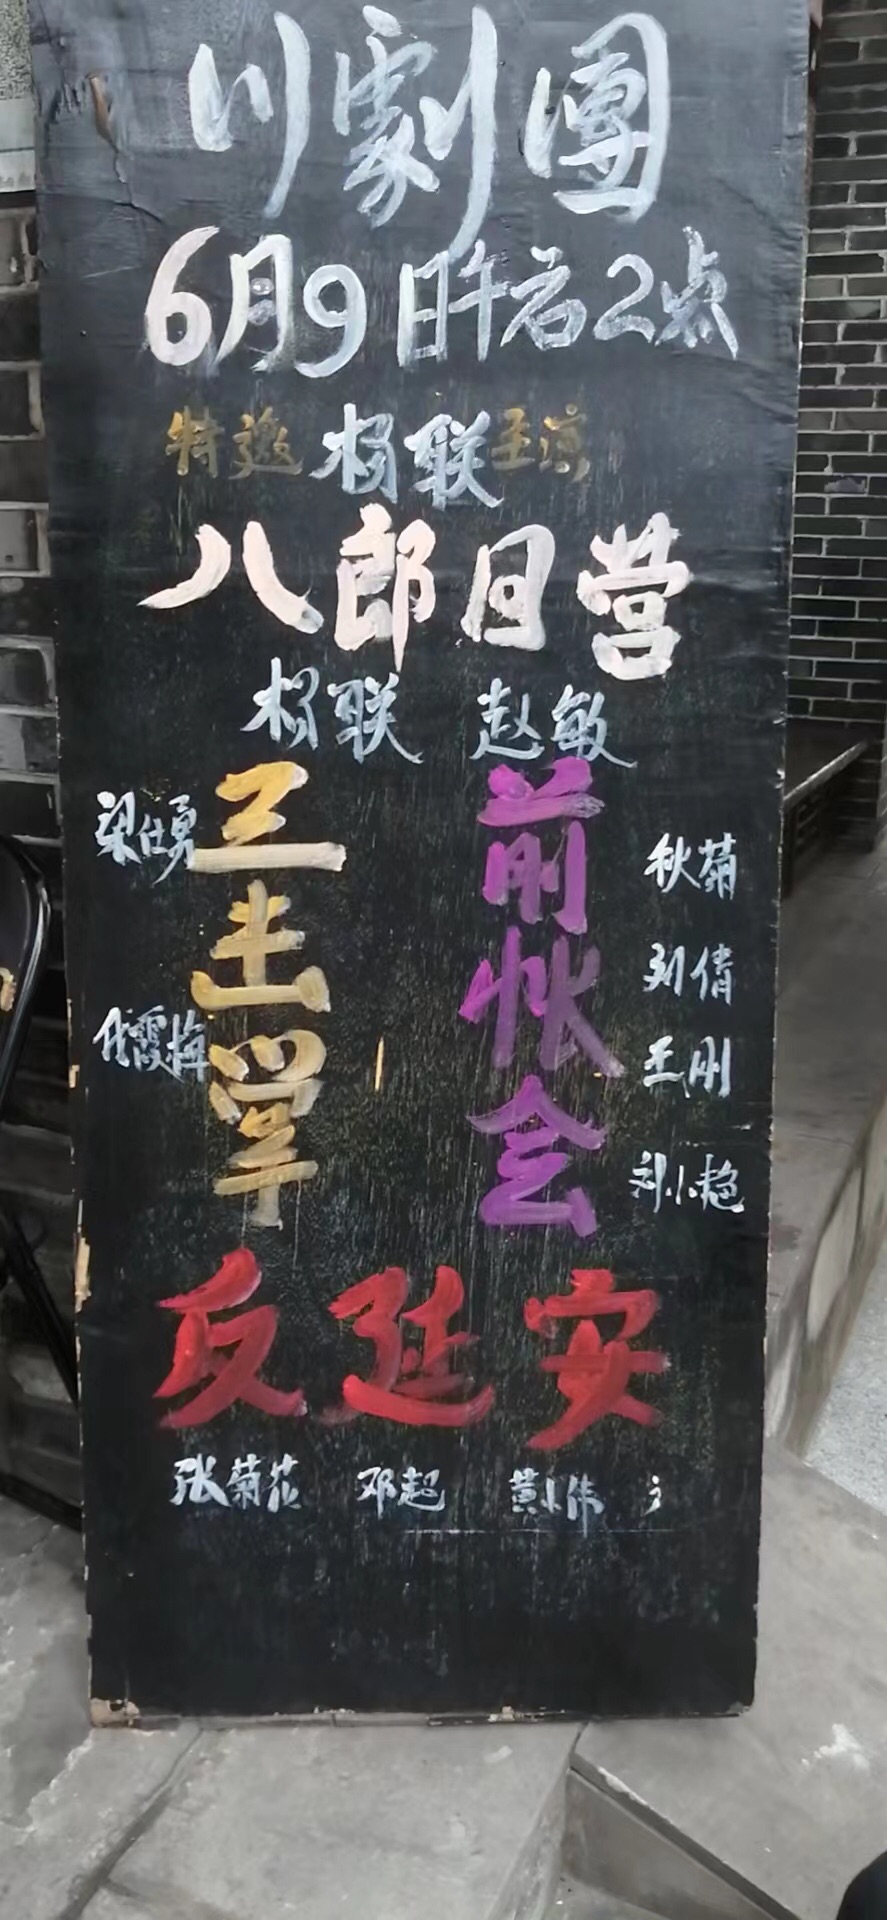 川劇團
6月9日午后2点
特邀 杨联 主演
八郎回营
杨联 赵敏
三击掌
梁仕勇
代霞梅
前帐会
秋菊
刘倩
王刚
刘小艳
反延安
张菊花 邓超 黄小伟